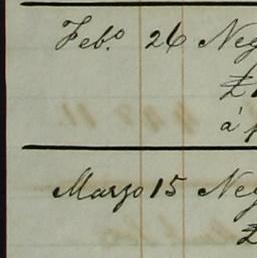 Feb.º 26 Neg
á
Marzo 15 Neg